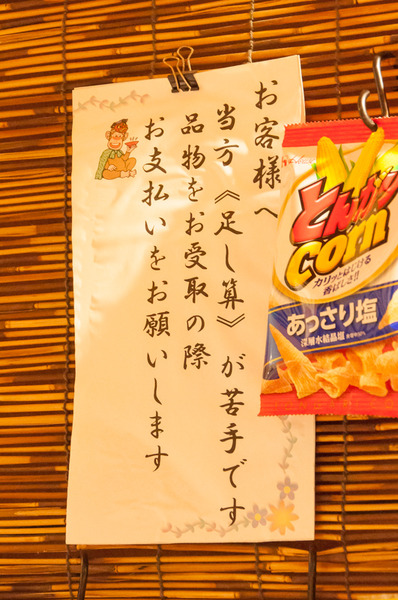 お客様へ
当方《足し算》が苦手です
品物をお受取の際
お支払いをお願いします
とんがり
corn
カリッとはじける
香ばしさ!!
あっさり塩
深層水結晶塩